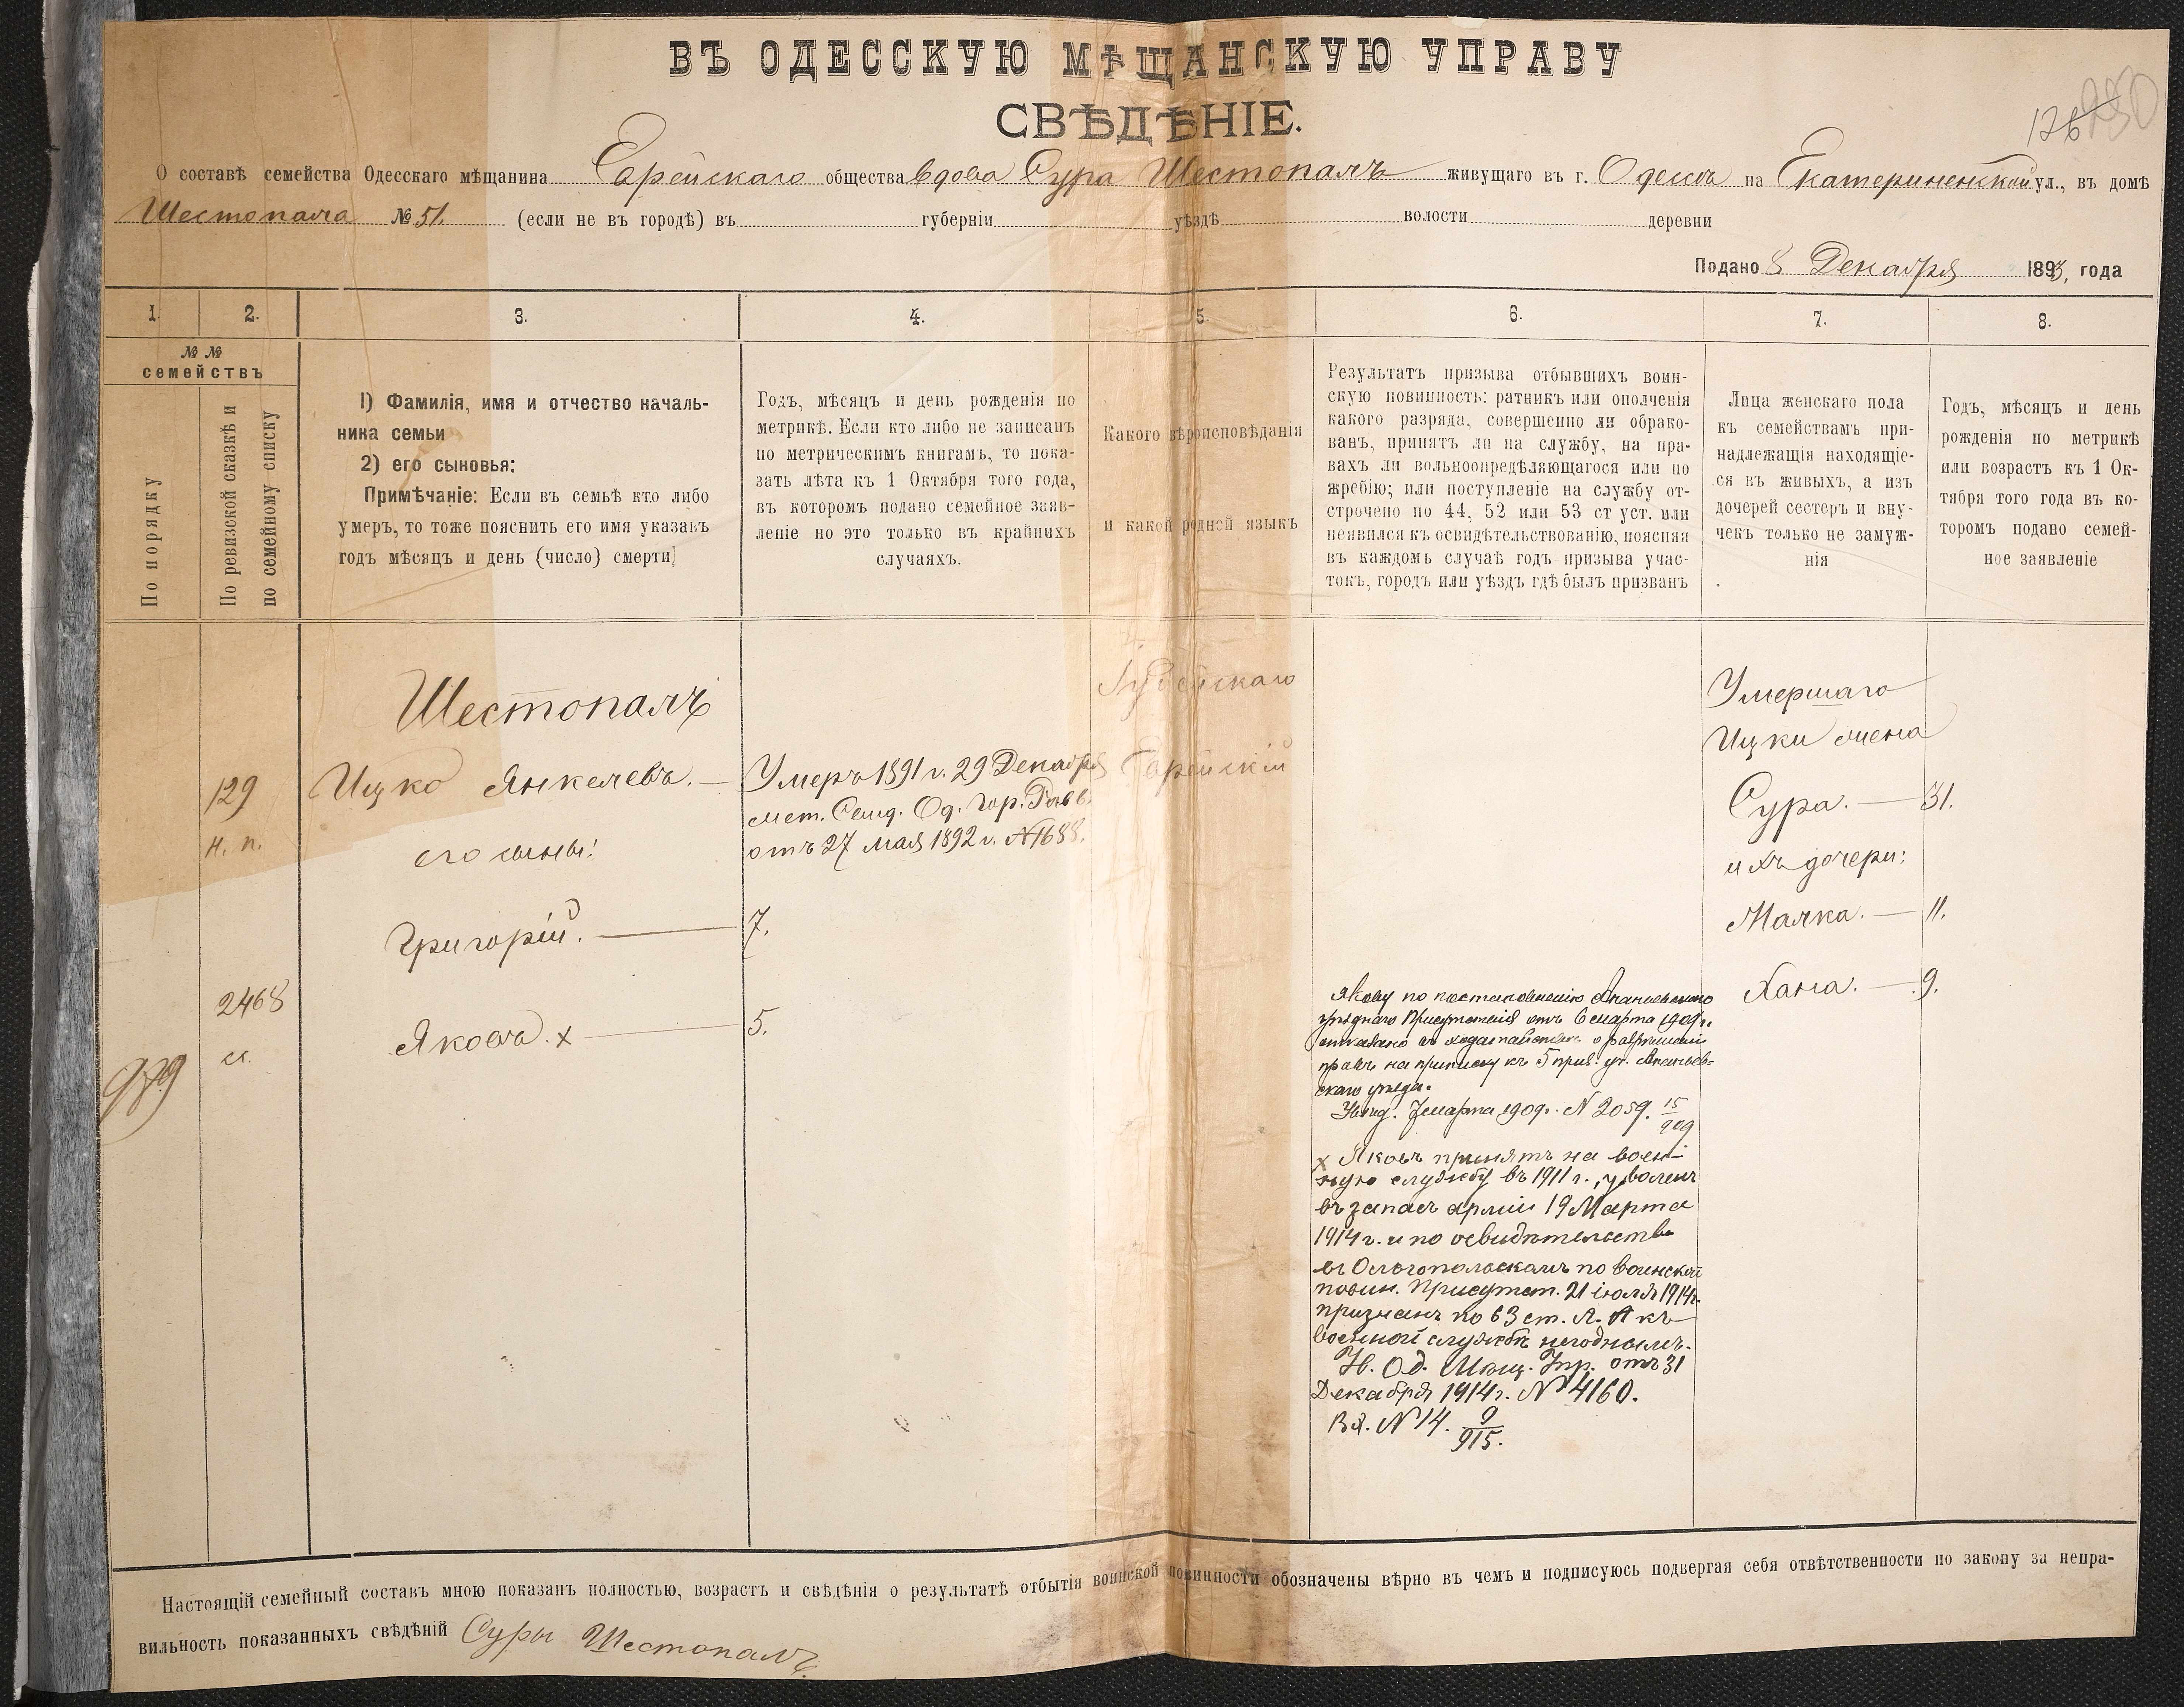 ВЪ ОДЕССКУЮ МѢЩАНСКУЮ УПРАВУ
СВѢДѢНІЕ.
О составѣ семейства Одесскаго мѣщанина Еврейскаго общества вдова Сура Шестопалъ живущаго въ г. Одессѣ на Екатериненской ул., въ домѣ
Шестопала № 51. (если не въ городѣ) въ губерніи уѣздѣ волости деревни
Подано 8 Декабря 1893, года
1. 2. 3. 4. 5. 6. 7. 8.
№ №
семействъ
По порядку
По ревизской сказкѣ и
по семейному списку
1) Фамилія, имя и отчество началь-
ника семьи
2) его сыновья:
Примѣчаніе: Если въ семьѣ кто либо
умеръ, то тоже пояснить его имя указавъ
годъ мѣсяцъ и день (число) смерти]
Годъ, мѣсяцъ и день рожденія по
метрикѣ. Если кто либо не записанъ
по метрическимъ книгамъ, то пока-
зать лѣта къ 1 Октября того года,
въ которомъ подано семейное заяв-
леніе но это только въ крайнихъ
случаяхъ.
Какого вѣроисповѣданія
и какой родней языкъ
Результатъ призыва отбывшихъ воин-
скую повинность: ратникъ или ополченія
какого разряда, совершенно ли обрако-
ванъ, принятъ ли на службу, на пра-
вахъ ли вольноопредѣляющагося или по
жребію; или поступленіе на службу от-
строчено по 44, 52 или 53 ст уст. или
неявился къ освидѣтельствованію, поясняя
въ каждомъ случаѣ годъ призыва учас-
токъ, городъ или уѣздъ гдѣ былъ призванъ
Лица женскаго пола
къ семействамъ при-
надлежащія находящіе-
ся въ живыхъ, а изъ
дочерей сестеръ и вну-
чекъ только не замуж-
нія
Годъ, мѣсяцъ и день
рожденія по метрикѣ
или возрастъ къ 1 Ок-
тября того года въ ко-
торомъ подано семей-
ное заявленіе
979
129
н. п.
2468
Шестопалъ
Ицко Янкелевъ. —
его сыны:
Григорій. —
Яковъ. х —
Умеръ 1891 г. 29 Декабря
мет. Свид. Од. Гор. Равв.
отъ 27 мая 1892 г. № 1688.
7.
5.
Іудейскаго
Еврейскій
Якову по постановленію Ананьевскаго
уѣзднаго Присутствія отъ 6 марта 1909 г.
отказано въ ходатайствѣ о разрѣшеніи
правъ на приписку къ 5 приз. уч. Ананьев-
скаго уѣзда.
Увѣд. 7 марта 1909 г. № 2059. 15/909
х Яковъ принятъ на воен-
ную службу въ 1911 г., уволенъ
въ запасъ арміи 19 Марта
1914 г. и по освидѣтельств
въ Ольгопольскомъ по воинской
повин. Присутств. 21 іюля 1914 г.
признанъ по 63 ст. Л. А къ
военной службѣ негоднымъ.
Ув. Од. Мѣщ. Упр. отъ 31
Декабря 1914 г. № 4160.
Вх. № 14. 9/915.
Умершаго
Ицки жена
Сура. — 31.
ихъ дочери:
Малка. — 11.
Хана. — 9.
Настоящій семейный составъ мною показанъ полностью, возрастъ и свѣдѣнія о результатѣ отбытія воинской повинности обозначены вѣрно въ чемъ и подписуюсь подвергая себя отвѣтственности по закону за непра-
вильность показанныхъ свѣдѣній Суры Шестопалъ.